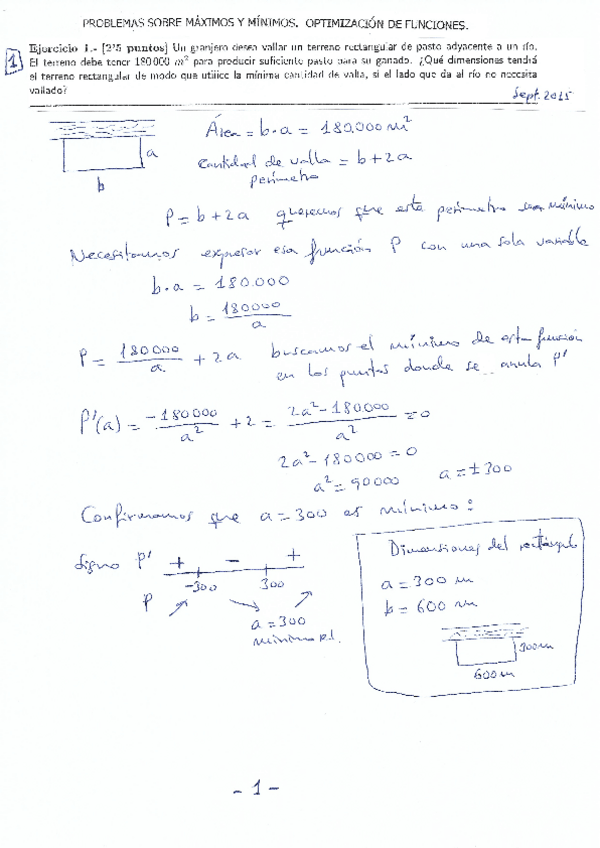 PROBLEMAS SOBRE MÁXIMOS Y MÍNIMOS. OPTIMIZACIÓN DE FUNCIONES.
1
Ejercicio 1.- [2'5 puntos] Un granjero desea vallar un terreno rectangular de pasto adyacente a un río.
El terreno debe tener 180000 m² para producir suficiente pasto para su ganado. ¿Qué dimensiones tendrá
el terreno rectangular de modo que utilice la mínima cantidad de valla, si el lado que da al río no necesita
vallado?
Sept. 2015
Área = b·a = 180.000 m²
a
b
Cantidad de valla = b + 2a
perímetro
P = b + 2a queremos que este perímetro sea mínimo
Necesitamos expresar esa función P con una sola variable
b·a = 180.000
b = 180000 / a
P = 180000 / a + 2a buscamos el mínimo de esta función
en los puntos donde se anula P'
P'(a) = -180000 / a² + 2 = 2a² - 180.000 / a² = 0
2a² - 180000 = 0
a² = 90000 a = ±300
Confirmamos que a = 300 es mínimo:
Signo P' + - +
-300 300
P
a = 300
mínimo
Dimensiones del rectángulo
a = 300 m
b = 600 m
300m
600m
- 1 -